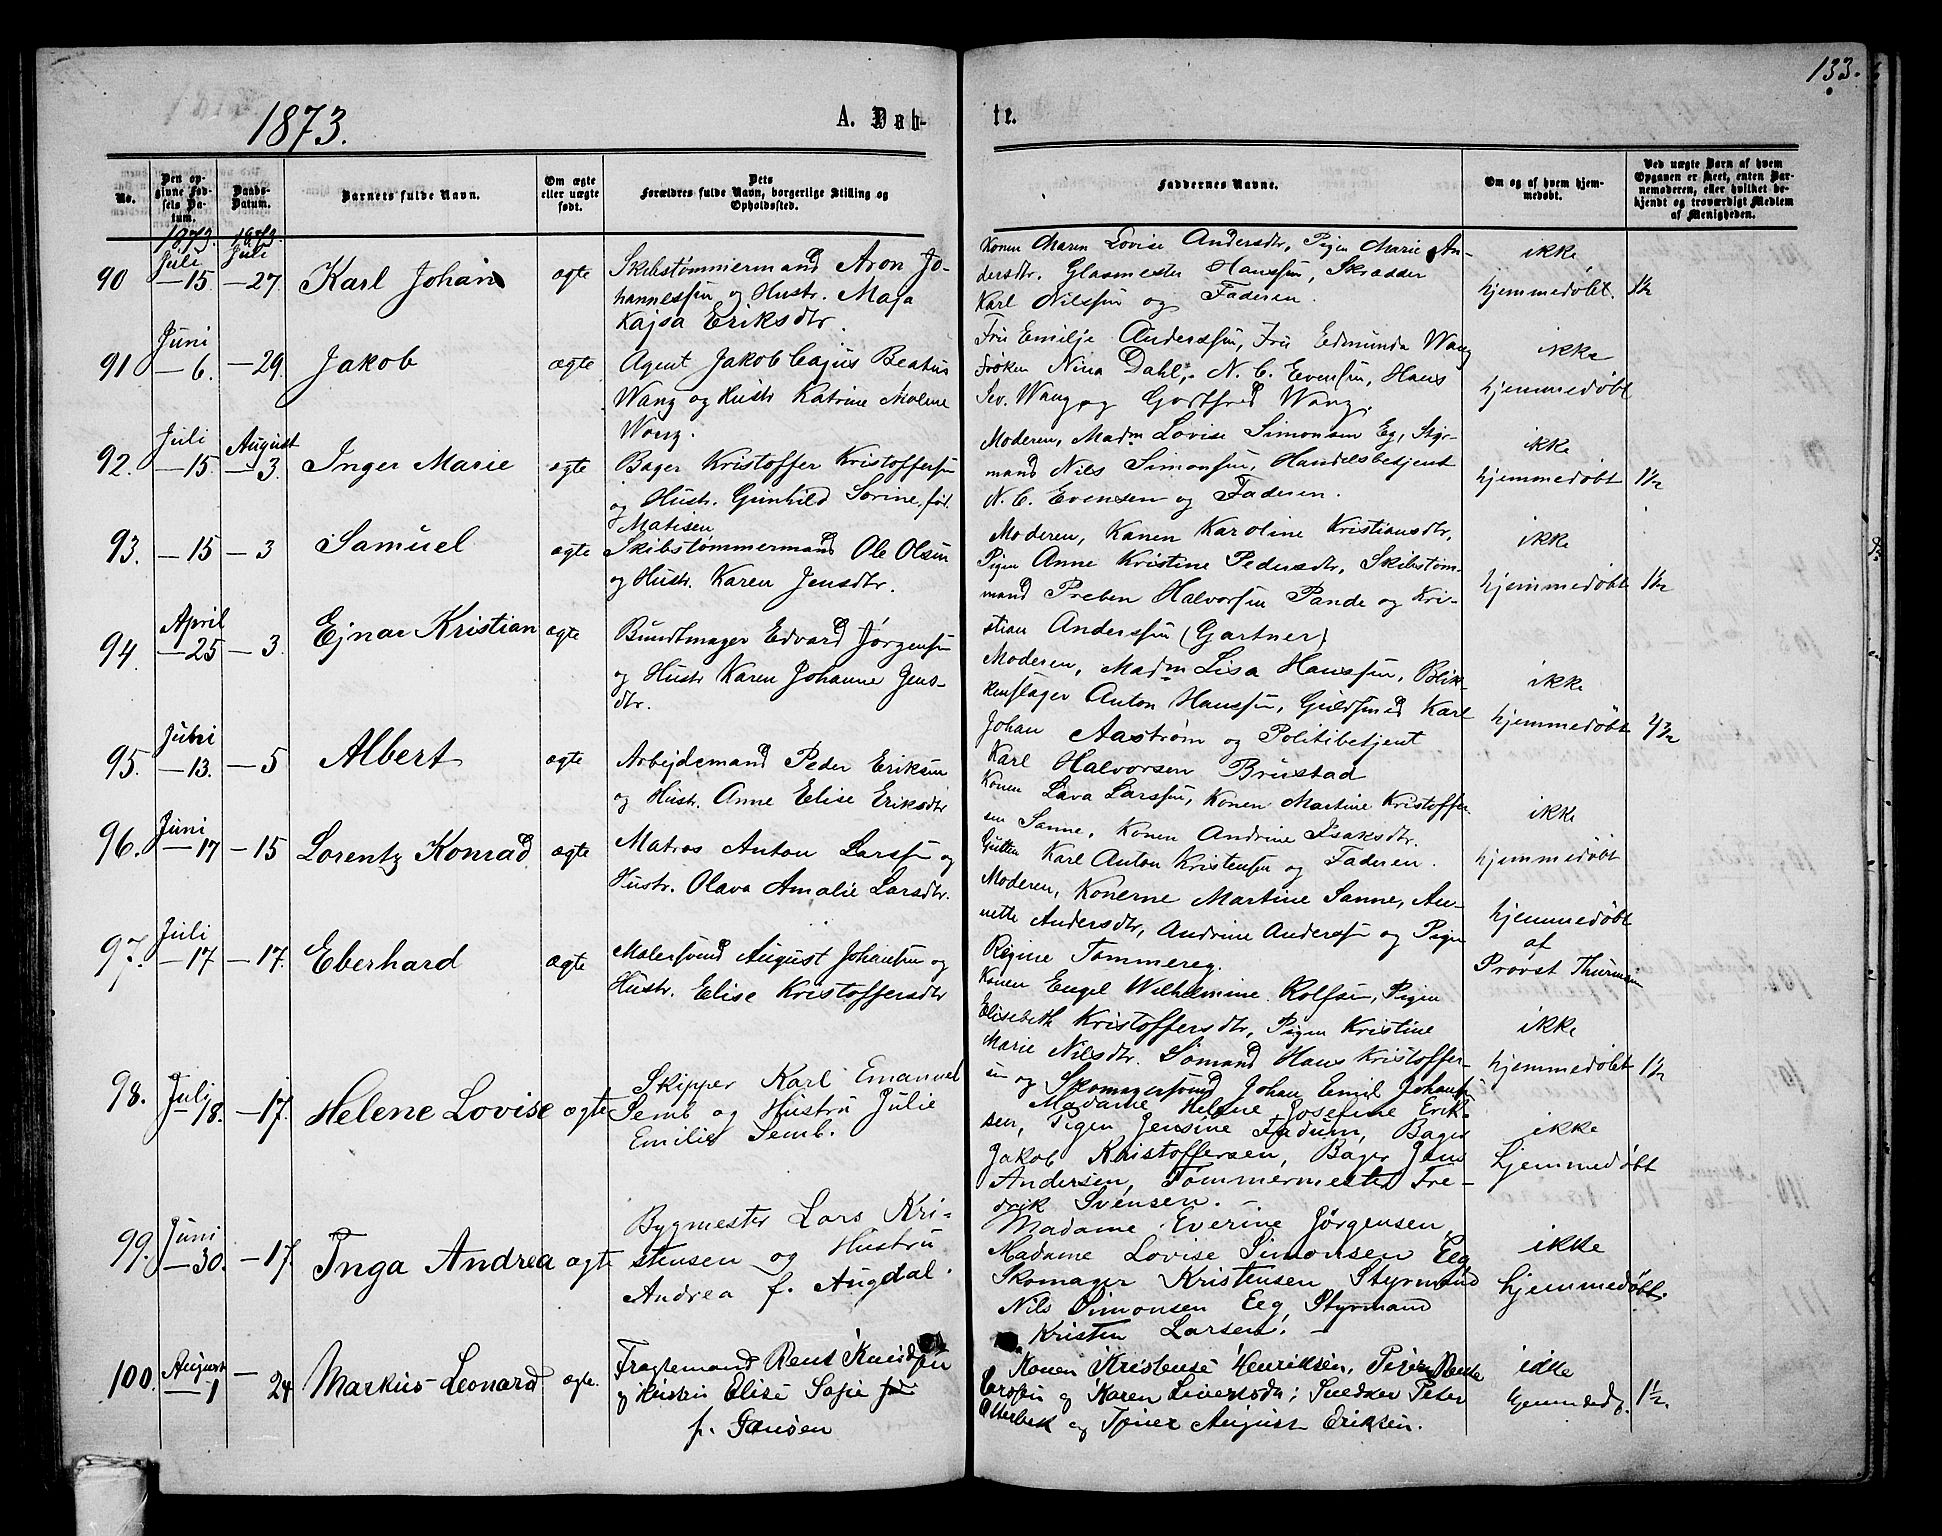 133.
1873.
A. Døb-
te.
No.
Den op-
givne Fød-
sels Da-
tum.
Daabs-
Datum.
Barnets fulde Navn.
Om ægte
eller uægte
født.
Dets
Forældres fulde Navn, borgerlige Stilling og
Opholdssted.
Faddernes Navne.
Om og af hvem hjem-
medøbt.
Ved uægte Barn af hvem
Opgaven er skeet, enten Bar-
nemoderen, eller hvilket be-
kjendt og troværdigt Medlem
af Menigheden.
1873.
Juli
1873.
Juli
90
—15.
—27.
Karl Johan
ægte
Skibstømmermand Aron Jo-
hannessen og Hustr. Maja
Kajsa Eriksdtr.
Konen Maren Lovise Andersdtr, Pigen Marie An-
dersdtr. Glasmester Hanssen, Skrædder
Karl Nilssen og Faderen.
ikke
hjemmedøbt.
1½
91
Juni
—6.
—29.
Jakob
ægte
Agent Jakob Cajus Beatus
Wang og Hustr Katrine Molene
Wang.
Fru Emilje Anderssen, Fru Edmunda Wang
Frøken Nina Dahl, N. C. Evensen, Hans
Sev. Wang og Gottfred Wang.
ikke
hjemmedøbt
92.
Juli
—15.
August
—3.
Inger Marie
ægte
Bager Kristoffer Kristoffersen
og Hustr. Gunhild Sorine, fød.
Matisen
Moderen, Madm Lovise Simonsen Eg, Styr-
mand Nils Simonsen, Handelsbetjent
N. C. Evensen og Faderen.
ikke
hjemmedøbt
1½
93.
—15
—3
Samuel
ægte
Skibstømmermand Ole Olsen
og Hustr. Karen Jensdtr.
Moderen, Konen Karoline Kristiansdtr,
Pigen Anne Kristine Pedersdtr, Skibstøm-
mand Preben Halvorsen Pande og Kri-
stian Anderssen (Gartner)
ikke
hjemmedøbt
1½
94.
April
—25
—3.
Ejnar Kristian
ægte
Bundtmager Edvard Jørgensen
og Hustr Karen Johanne Jens-
dtr.
Moderen, Madm Lisa Hanssen, Blik-
kenslager Anton Hanssen, Guldsmed Karl
Johan Aastrøm og Politibetjent
Karl Halvorsen Brustad
ikke
hjemmedøbt
95.
—13.
—5
Albert
ægte
Arbejdsmand Peder Eriksen
og Hustr. Anne Elise Eriksdtr
Konen Lava Larssen, Konen Martine Kristoffer-
sen Sanne, Konen Andrine Isaksdtr.
Gutten Karl Anton Kristensen og Faderen.
ikke
hjemmedøbt
96.
Juni
—17
—15
Lorentz Konrad
ægte
Matros Anton Larssen og
Hustr. Olava Amalie Larsdtr.
Moderen, Konerne Martine Sanne, An-
nette Andersdtr, Andrine Anderssen og Pigen
Regine Tommereg.
hjemmedøbt
af
Provst Thurmann
97.
Juli
—17
—17.
Eberhard
ægte
Malersvend August Johansen og
Hustr. Elise Kristoffersdtr
Konen Engel Wilhelmine Rolfsen, Pigen
Elisebeth Kristoffersdtr, Pigen Kristine
Marie Nilsdtr. Sømand Hans Kristoffer-
sen og Skomagersvend Johan Emil Johansen
ikke
hjemmedøbt
1½
98.
Juli
—18.
—17.
Helene Lovise
ægte
Skipper Karl Emanuel
Semb og Hustru Julie
Emilie Semb.
Madame Helene Josefine Erik-
sen, Pigen Jensine Fadum, Bager
Jakob Kristoffersen, Bager Jens
Andersen, Tømmermester Fre-
drik Svensen. —
ikke
hjemmedøbt
99.
Juni
—30.
—17.
Inga Andrea
ægte
Bygmester Lars Kri-
stensen og Hustru
Andrea f. Augdal.
Madame Everine Jørgensen
Madame Lovise Simonsen Eeg
Skomager Kristensen, Styrmand
Nils Simonsen Eeg, Styrmand
Kristen Larsen. —
ikke
hjemmedøbt.
100.
August
—1
—24
Markus Leonard
ægte.
Fragtemand Rens Knudsen
og Hustru Elise Sofie
f. Jansen
Konen Kristense Henriksen, Pigen
og Karen Sivertsdtr; Snedker Peter
Otterbek og Tjener August Eriksen.
ikke
hjemmedøb.
1½